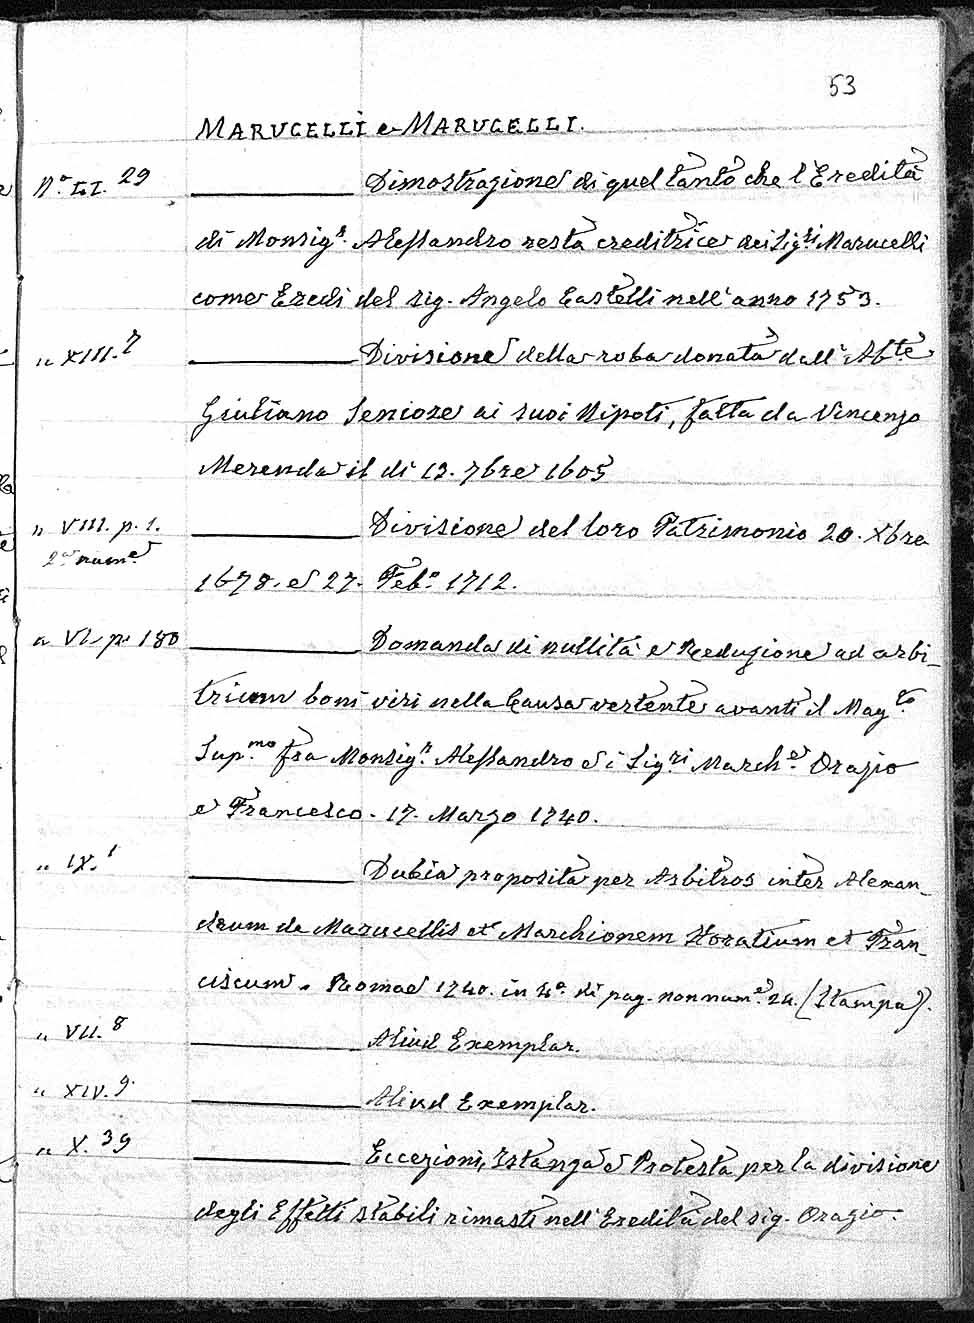 53
MARUCELLI e MARUCELLI.
N.º LI. 29 ———— Dimostrazione di quel tanto che l'Eredità
di Monsig.r Alessandro resta creditrice dei Sig.ri Marucelli
come Eredi del sig. Angelo Castelli nell'anno 1753.
„ XIII. 7 ———— Divisione della roba donata dall'Ab.te
Giuliano Seniore ai suoi Nipoti, fatta da Vincenzo
Merenda il di 13. 7bre 1605
„ VIII. p. 1. ———— Divisione del loro Patrimonio 20. Xbre
2.a num.e
1678. e 27. Feb.º 1712.
„ VI. p. 180 ———— Domanda di nullità e Reduzione ad arbi-
trium boni viri nella Causa vertente avanti il Mag.to
Sup.mo fra Monsig.r Alessandro e i Sig.ri March.e Orazio
e Francesco. 17. Marzo 1740.
„ IX. 1 ———— Dubia proposita per Arbitros inter Alexan-
drum de Marucellis et Marchionem Horatium et Fran-
ciscum. Romae 1740. in 4.º di pag. non num.e 24. (Stampa).
„ VII. 8 ———— Aliud Exemplar.
„ XIV. 9. ———— Aliud Exemplar.
„ X. 39 ———— Eccezioni, Istanza e Protesta per la divisione
degli Effetti stabili rimasti nell'Eredità del sig. Orazio.